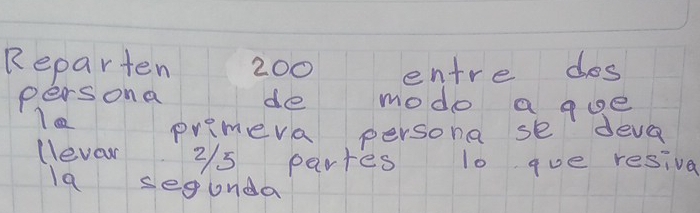 Reparten 200 entre dos
persona de modo a que
la primera persona se deva
llevar 2/5 partes lo que resiva
la segunda